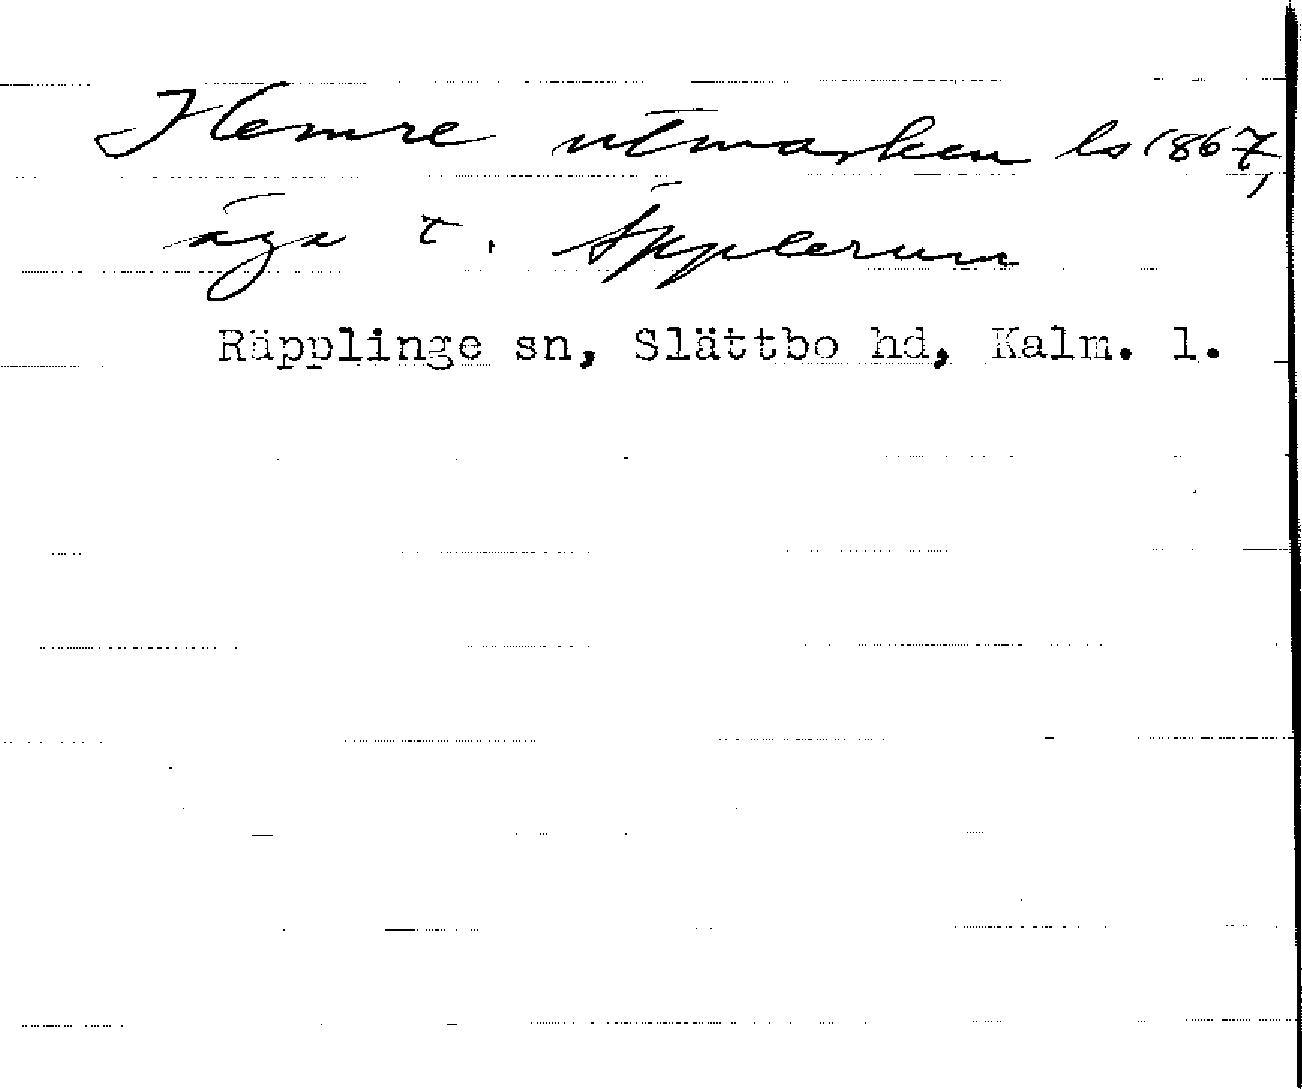 Hemre utmarken ls 1867,
äga t. Äpplerum
Räpplinge sn, Slättbo hd, Kalm. l.